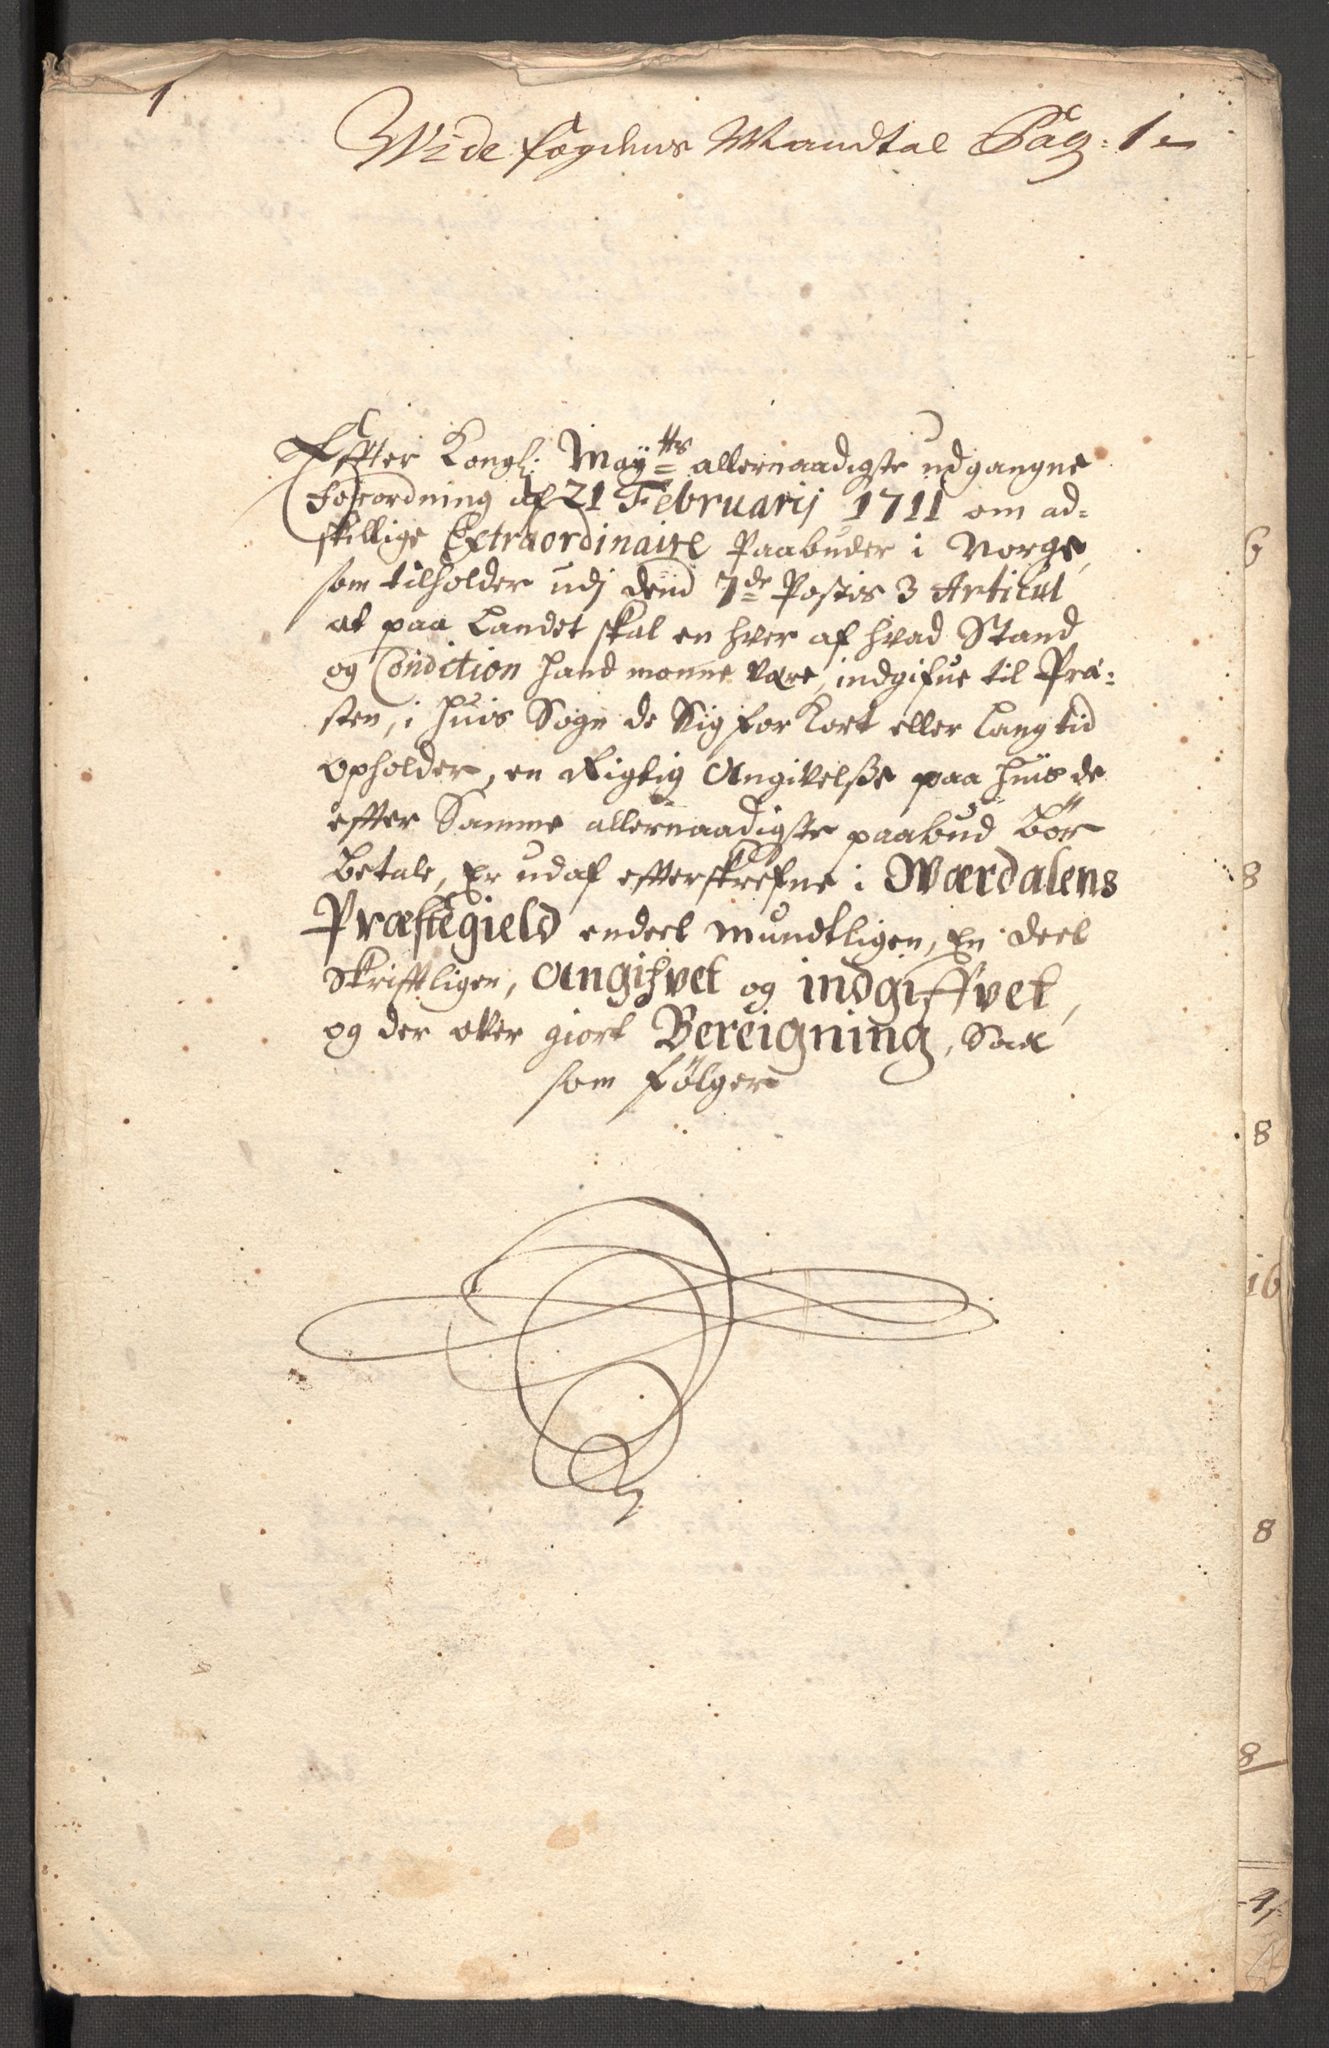 1
Wide fogdens Mandtal Pag: 1
Effter Kongl: May:tts allernaadigste udgangne
Forordning af 21 Februarij 1711 om ad=
skillige Extraordinaire Paabuder i Norge,
som tilholder udj dend 7de Postes 3 Articul
at paa Landet skal en hver af hvad Stand
og Condition hand monne være, indgifue til Præ-
sten, i huis Sogn de Sig for Kort eller Lang tid
opholder, en Rigtig Angivelsße paa huis de
efter Samme allernaadigste paabud bør
betale, Er udaf efterskrefne i Wærdalens
Præstegield endeel mundtligen, En deel
Skrifftligen, Angifvet og indgiffvet,
og der over giort Bereigning, Saa
som følger
6
8
8
16
8
8